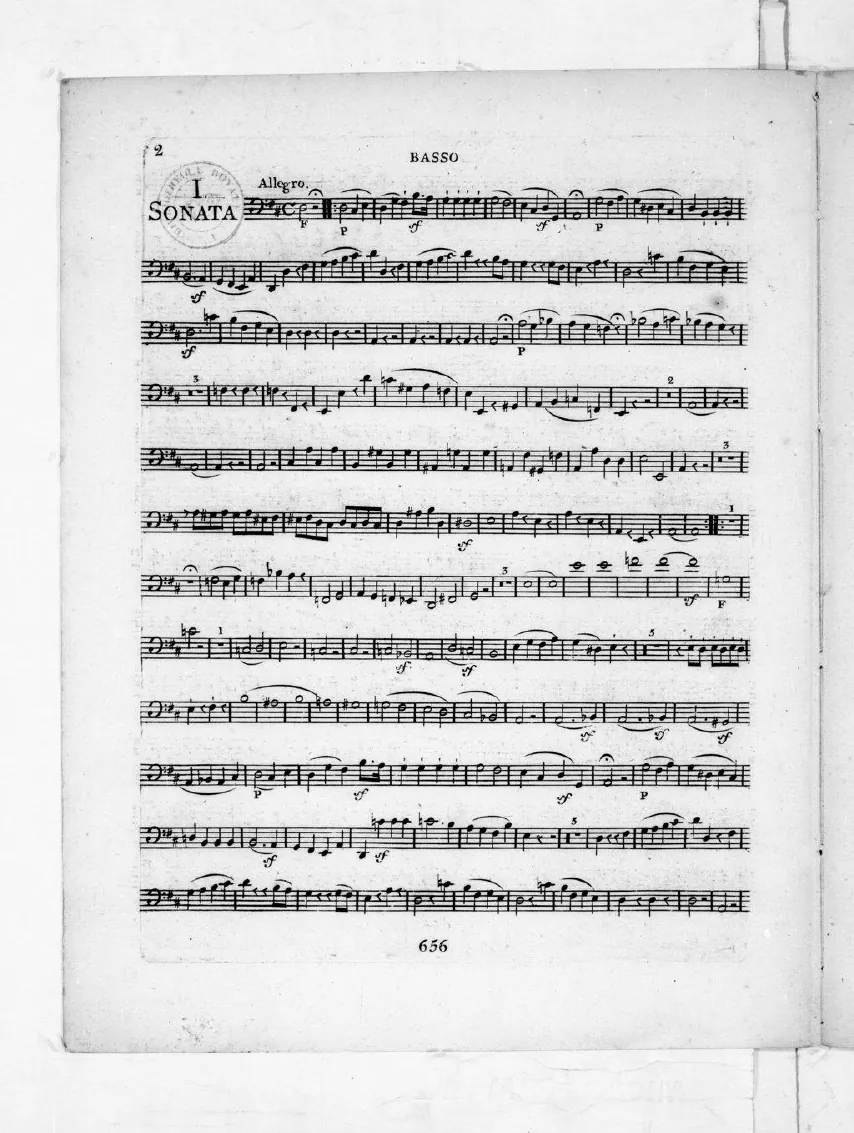 2
BASSO
I.
SONATA
Allegro.
F P sf sf P
sf
sf P
3 2
3
sf 1
3 sf F
1 sf sf 3
sf sf sf
P sf sf P
sf sf 3
656